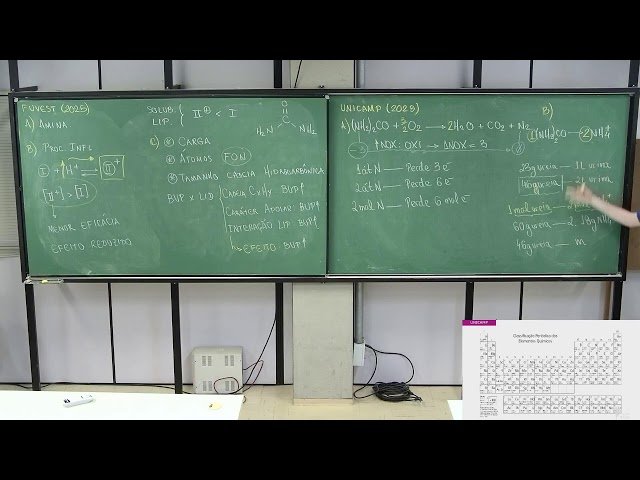 FUVEST (2025)
A) AMINA
B) PROC. INFL
I + H⁺ → II⁺
[II⁺] > [I]
MENOR EFICÁCIA
EFEITO REDUZIDO
SOLUB. LIP. { II⁺ < I
O
C
H₂N NH₂
C) CARGA
ÁTOMOS FON
TAMANHO CADEIA HIDROCARBÔNICA
BUP × LID
CADEIA CxHy BUP↑
CARÁTER APOLAR BUP↑
INTERAÇÃO LIP BUP↑
EFEITO BUP↑
UNICAMP (2025)
A) (NH₂)₂CO + 3/2 O₂ → 2H₂O + CO₂ + N₂
↑NOX: OXI → ΔNOX = 3
1 át N — Perde 3e⁻
2 át N — Perde 6e⁻
2 mol N — Perde 6 mol e⁻
B)
1(NH₂)₂CO — 2NH₄⁺
23g ureia — 1L urina
46g ureia — 2L urina
1 mol ureia — 2
60g ureia — 2. 18g NH₄⁺
46g ureia — m
UNICAMP
Classificação Periódica dos
Elementos Químicos